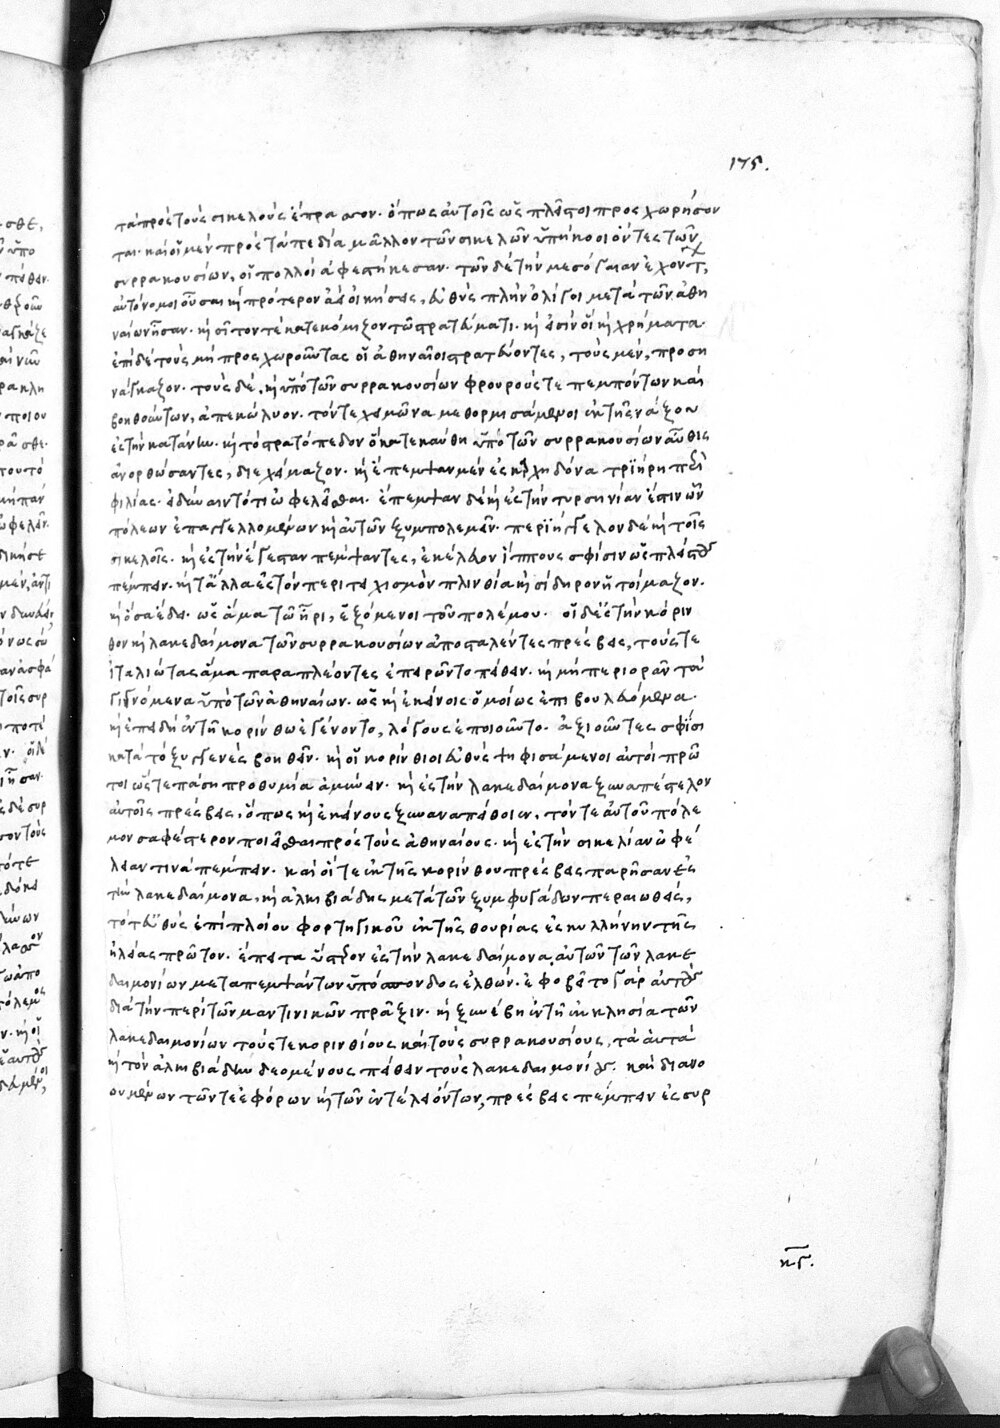 175.
τὰ πρὸς τοὺς σικελοὺς ἔπρασσον. ὅπως αὐτοῖς ὡς πλεῖστοι προσχωρήσον
ται. καὶ οἱ μὲν πρὸς τὰ πεδία μᾶλλον τῶν σικελῶν ὑπήκοοι ὄντες τῶν
συρρακουσίων, οἱ πολλοὶ ἀφεστήκεσαν. τῶν δὲ τὴν μεσόγαιαν ἐχόντων,
αὐτόνομοι οὖσαι καὶ πρότερον ἀεὶ οἰκήσεις, εὐθὺς πλὴν ὀλίγοι μετὰ τῶν ἀθη
ναίων ἦσαν. καὶ σῖτον τὲ κατεκόμιζον τῶ στρατεύματι. καὶ εἰσὶν οἳ καὶ χρήματα.
ἐπὶ δὲ τοὺς μὴ προσχωροῦντας οἱ ἀθηναῖοι στρατεύοντες, τοὺς μὲν, προση
νάγκαζον. τοὺς δὲ, καὶ ὑπὸ τῶν συρρακουσίων φρουρούς τε πεμπόντων καὶ
βοηθούντων, ἀπεκώλυον. τόν τε χειμῶνα μεθορμισάμενοι ἐκ τῆς νάξου
ἐς τὴν κατάνην. καὶ τὸ στρατόπεδον ὃ κατεκαύθη ὑπὸ τῶν συρρακουσίων αὖθις
ἀνορθώσαντες, διεχείμαζον. καὶ ἔπεμψαν μὲν ἐς καρχηδόνα τριήρη περὶ
φιλίας. εἰ δύναιντό τι ὠφελεῖσθαι. ἔπεμψαν δὲ καὶ ἐς τὴν τυρσηνίαν ἔστιν ὧν
πόλεων ἐπαγγελλομένων καὶ αὐτῶν ξυμπολεμεῖν. περιήγγελον δὲ καὶ τοῖς
σικελοῖς. καὶ ἐς τὴν ἔγεσταν πέμψαντες, ἐκέλευον ἵππους σφίσιν ὡς πλείστους
πέμπειν. καὶ τἆλλα ἐς τὸν περιτειχισμὸν πλινθία καὶ σίδηρον ἡτοίμαζον.
καὶ ὅσα ἔδει. ὡς ἅμα τῶ ἦρι, ἑξόμενοι τοῦ πολέμου. οἱ δὲ ἐς τὴν κόριν
θον καὶ λακεδαίμονα τῶν συρρακουσίων ἀποσταλέντες πρέσβεις, τούς τε
ἰταλιώτας ἅμα παραπλέοντες ἐπειρῶντο πείθειν. καὶ μὴ περιορᾶν τὰ
γιγνόμενα ὑπὸ τῶν ἀθηναίων. ὡς καὶ ἐκείνοις ὁμοίως ἐπιβουλευόμενα.
καὶ ἐπειδὴ ἐν τῆ κορίνθω ἐγένοντο, λόγους ἐποιοῦντο. ἀξιοῦντες σφίσι
κατὰ τὸ ξυγγενὲς βοηθεῖν. καὶ οἱ κορίνθιοι εὐθὺς ψηφισάμενοι αὐτοὶ πρῶ
τοι ὥστε πάση προθυμία ἀμύνειν. καὶ ἐς τὴν λακεδαίμονα ξυναπέστελον
αὐτοῖς πρέσβεις. ὅπως καὶ ἐκείνους ξυναναπείθοιεν. τόν τε αὐτοῦ πόλε
μον σαφέστερον ποιεῖσθαι πρὸς τοὺς ἀθηναίους. καὶ ἐς τὴν σικελίαν ὠφέ
λειαν τινὰ πέμπειν. καὶ οἵ τε ἐκ τῆς κορίνθου πρέσβεις παρῆσαν ἐς
τὴν λακεδαίμονα, καὶ ἀλκιβιάδης μετὰ τῶν ξυμφυγάδων περαιωθεὶς,
τότ εὐθὺς ἐπὶ πλοίου φορτηγικοῦ ἐκ τῆς θουρίας ἐς κυλλήνην τῆς
ἠλείας πρῶτον. ἔπειτα ὕστερον ἐς τὴν λακεδαίμονα, αὐτῶν τῶν λακε
δαιμονίων μεταπεμψάντων ὑπόσπονδος ἐλθών. ἐφοβεῖτο γὰρ αὐτοὺς
διὰ τὴν περὶ τῶν μαντινικῶν πρᾶξιν. καὶ ξυνέβη ἐν τῆ ἐκκλησία τῶν
λακεδαιμονίων τούς τε κορινθίους καὶ τοὺς συρρακουσίους, τὰ αὐτὰ
καὶ τὸν ἀλκιβιάδην δεομένους πείθειν τοὺς λακεδαιμονίους. καὶ διανο
ουμένων τῶν τε ἐφόρων καὶ τῶν ἐν τέλει ὄντων, πρέσβεις πέμπειν ἐς συρ
κγ.